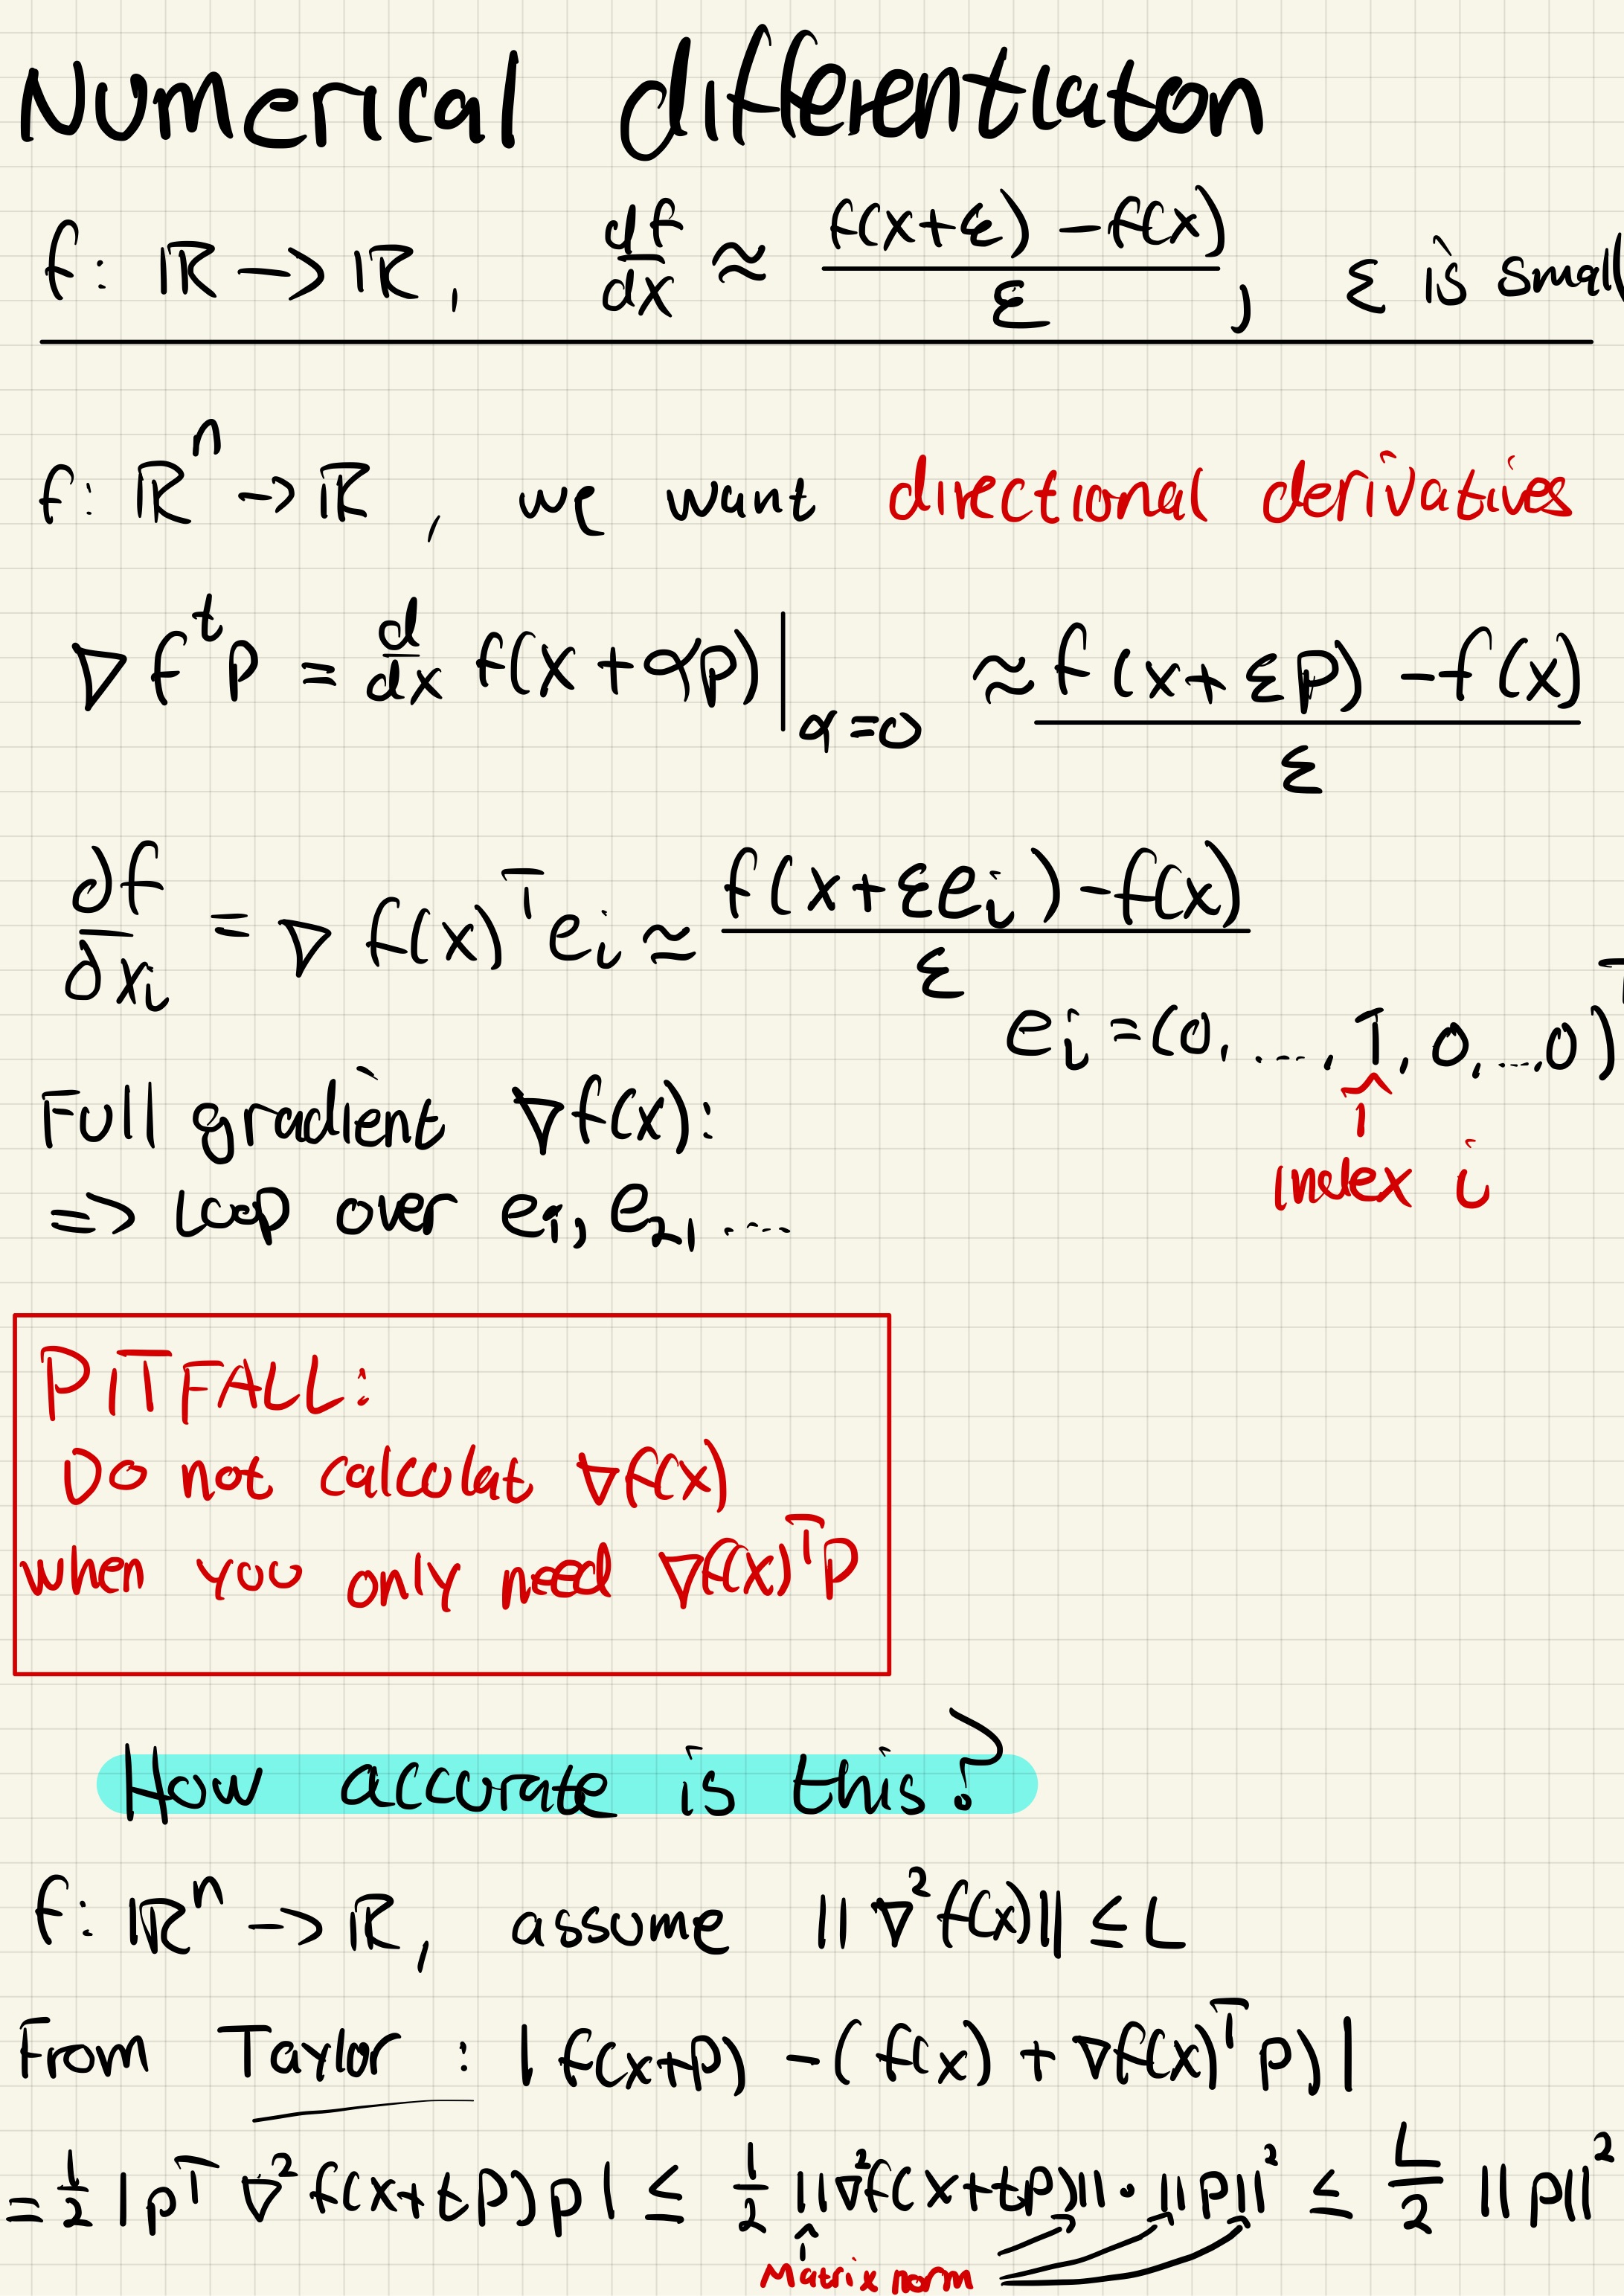 Numerical differentiaton
f: ℝ → ℝ, df/dx ≈ (f(x+ε) − f(x))/ε, ε is small
f: ℝⁿ → ℝ, we want directional derivatives
∇fᵗp = d/dx f(x + αp)|α=0 ≈ (f(x + εp) − f(x))/ε
∂f/∂xᵢ = ∇f(x)ᵀeᵢ ≈ (f(x+εeᵢ) − f(x))/ε
eᵢ = (0, ...., 1, 0, ...0)ᵀ
↑
index i
Full gradient ∇f(x):
=> loop over e₁, e₂, ....
PITFALL:
Do not calculat ∇f(x)
when you only need ∇f(x)ᵀp
How accurate is this?
f: ℝⁿ → ℝ, assume ||∇²f(x)|| ≤ L
From Taylor : |f(x+p) − (f(x) + ∇f(x)ᵀp)|
= 1/2 |pᵀ ∇²f(x+tp)p| ≤ 1/2 ||∇²f(x+tp)|| · ||p||² ≤ L/2 ||p||²
Matrix norm